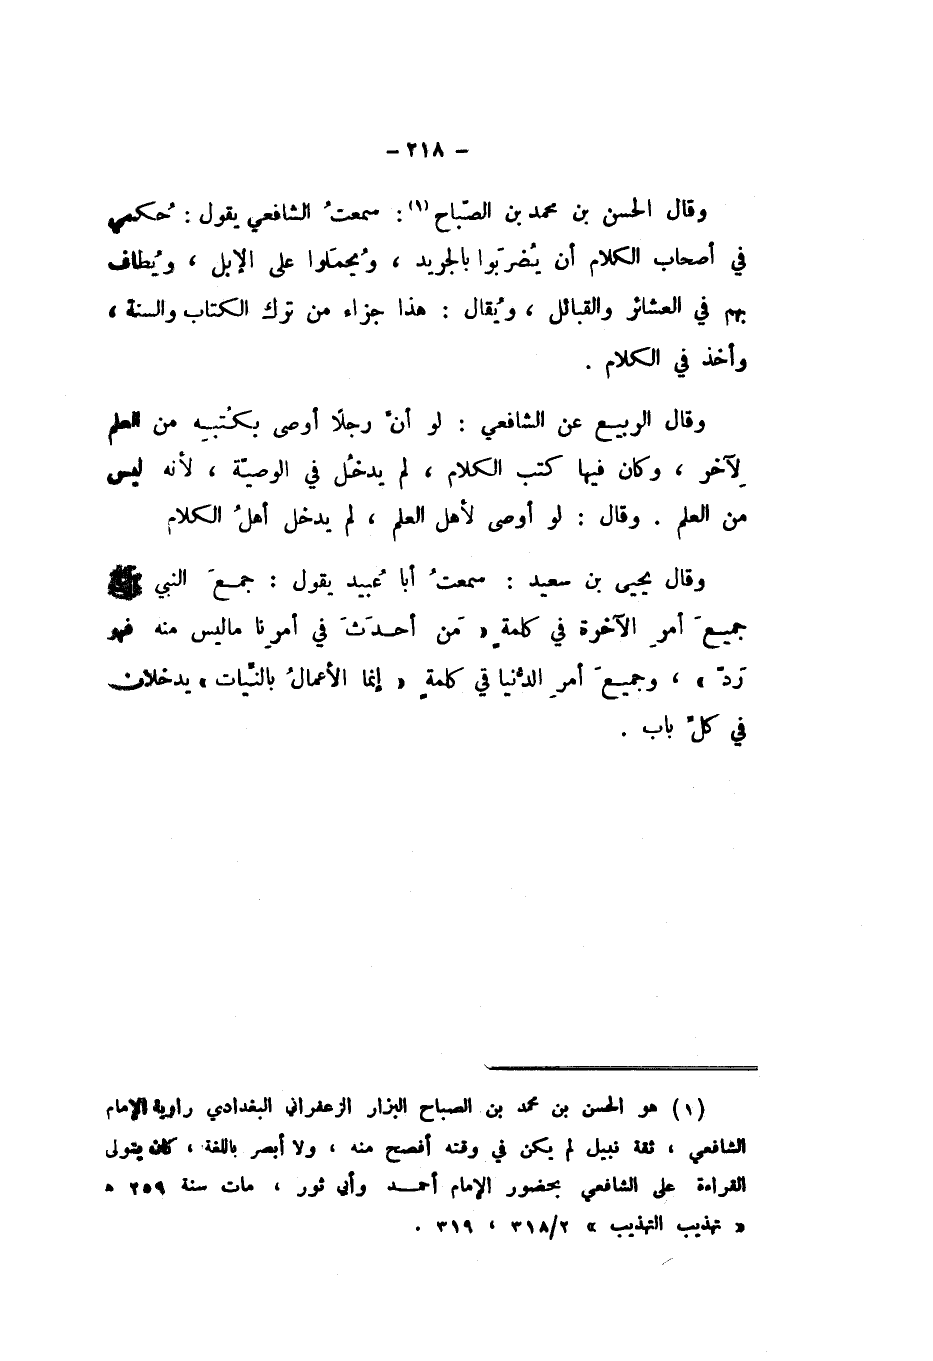 - ٢١٨ -
وقال الحسن بن محمد بن الصّباح (١) : سمعتُ الشافعي يقول : حُكمي
في أصحاب الكلام أن يُضرَبوا بالجريد ، ويُحمَلوا على الإبل ، ويُطاف
بهم في العشائر والقبائل ، ويُقال : هذا جزاء من ترك الكتاب والسنة ،
وأخذ في الكلام .
وقال الربيع عن الشافعي : لو أنَّ رجلًا أوصى بكُتبِه من العلم
لِآخر ، وكان فيها كتب الكلام ، لم يدخُل في الوصيّة ، لأنه ليس
من العلم . وقال : لو أوصى لأهل العلم ، لم يدخل أهلُ الكلام
وقال يحيى بن سعيد : سمعتُ أبا عُبيد يقول : جمعَ النبي ﷺ
جميعَ أمرِ الآخرة في كلمةٍ « مَن أحدَثَ في أمرِنا ماليس منه فهو
رَدّ » ، وجميعَ أمرِ الدُّنيا في كلمةٍ « إنما الأعمالُ بالنيَّات » يدخلان
في كلِّ باب .
(١) هو الحسن بن محمد بن الصباح البزار الزعفراني البغدادي راوية الإمام
الشافعي ، ثقة نبيل لم يكن في وقته أفصح منه ، ولا أبصر باللغة ، كان يتولى
القراءة على الشافعي بحضور الإمام أحمد وأبي ثور ، مات سنة ٢٥٩ ه
« تهذيب التهذيب » ٣١٨/٢ ، ٣١٩ .